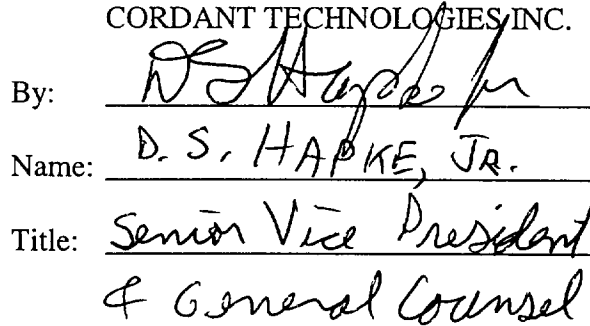 CORDANT TECHNOLOGIES INC.
By: DS Hapke Jr
Name: D. S. HAPKE, JR.
Title: Senior Vice President
& General Counsel